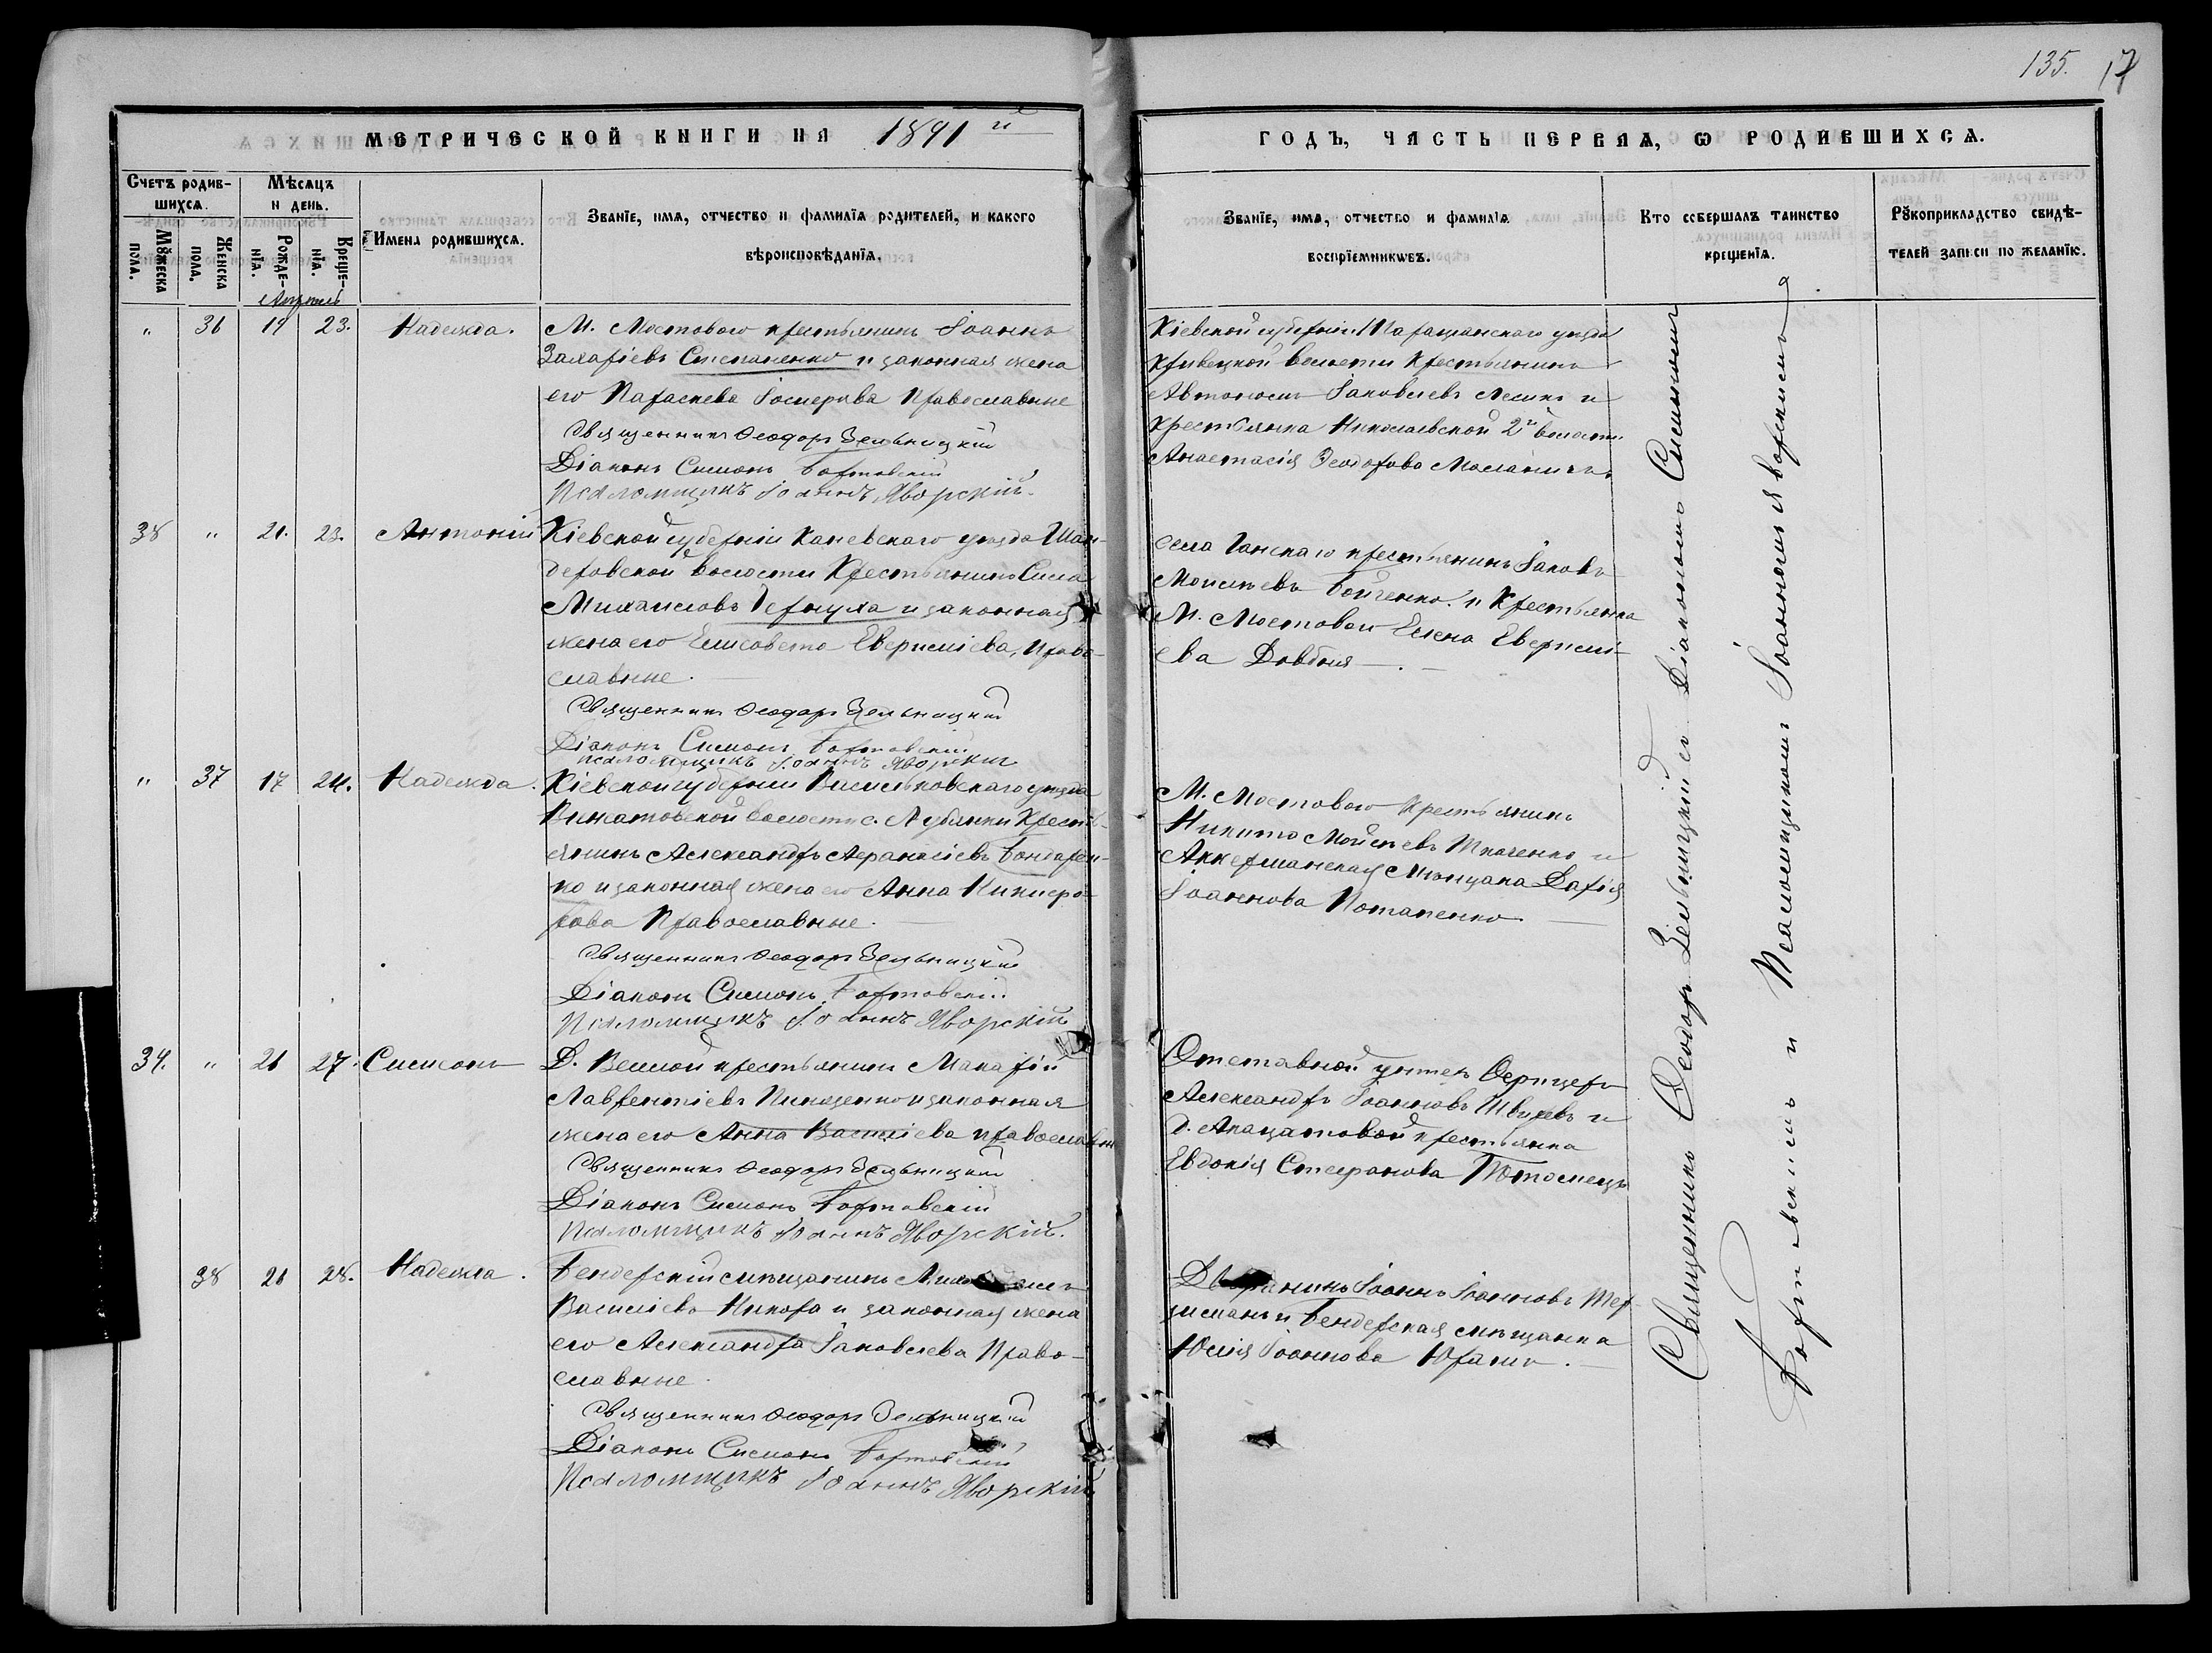 135. 17
МЕТРИЧЕСКОЙ КНИГИ НА 1891 й
ГОДЪ, ЧАСТЬ ПЕРВАЯ, Ѡ РОДИВШИХСѦ.
Счетъ родив-
шихсѧ.
Мѣсѧцъ
и день.
Мꙋжеска
пола.
Женска
пола.
Рожде-
нїѧ.
Креще-
нїѧ.
Имена родившихсѧ.
Званїе, имѧ, отчество и фамилїѧ родителей, и какого
вѣроисповѣданїѧ.
Званїе, имѧ, отчество и фамилїѧ
воспрїемникѡвъ.
Кто совершалъ таинство
крещенїѧ.
Рꙋкоприкладство свидѣ-
телей записи по желанїю.
Апрель
" 36 19 23. Надежда.
М. Мостового крестьянинъ Іоаннъ
Захаріевъ Степаненко и законная жена
его Параскева Іосифова Православные
Священникъ Ѳеодоръ Зельницкій
Діаконъ Симонъ Бортовскій
Псаломщикъ Іоаннъ Яворскій.
Кіевской губерніи Таращанскаго уезда
Кривецкой волости Крестьянинъ
Автономъ Іаковлевъ и
Крестьянка Николаевской 2й волости
Анастасія Ѳеодорова
38 " 21. 23. Антоній
Кіевской губерніи Каневскаго уезда Шан-
деровской волости Крестьянинъ Сила
Михаиловъ и законная
жена его Елисавета Евфиміева, Право-
славные.
Священникъ Ѳеодоръ Зельницкій
Діаконъ Симонъ Бортовскій
Псаломщикъ Іоаннъ Яворскій
села Ганскаго крестьянинъ Іаковъ
Моисеевъ Бойченко и Крестьянка
М. Мостового Елена Евфимі-
ева Довбня.
" 37 17 24. Надежда.
Кіевской губерніи Васильковскаго уезда
волости с. Крестъ-
янинъ Александръ Афанасіевъ Бондарен-
ко и законная жена его Анна Никифо-
рова Православные.
Священникъ Ѳеодоръ Зельницкій
Діаконъ Симонъ Бортовскій
Псаломщикъ Іоаннъ Яворскій
М. Мостового Крестьянинъ
Никита Мойсеевъ Ткаченко и
Аккерманская Мещанка Дарія
Іоаннова Потапенко
39. " 21 27. Симеонъ
Д. Веселой крестьянинъ Макарій
Лаврентіевъ и законная
жена его Анна Василіева православные
Священникъ Ѳеодоръ Зельницкій
Діаконъ Симонъ Бортовскій
Псаломщикъ Іоаннъ Яворскій.
Отставной унтеръ Офицеръ
Александръ Іоанновъ Швецевъ и
д. крестьянка
Евдокія Стефанова
38 21 28. Надежда.
Бендерскій мещанинъ
Василіевъ Никора и законная жена
его Александра Іаковлева Право-
славные.
Священникъ Ѳеодоръ Зельницкій
Діаконъ Симонъ Бортовскій
Псаломщикъ Іоаннъ Яворскій
Дворянинъ Іоаннъ Іоанновъ
и Бендерская мещанка
Юлія Іоаннова
Священникъ Ѳеодоръ Зельницкій съ Діакономъ Симономъ
Бортовскимъ и Псаломщикомъ Іоанномъ Яворскимъ